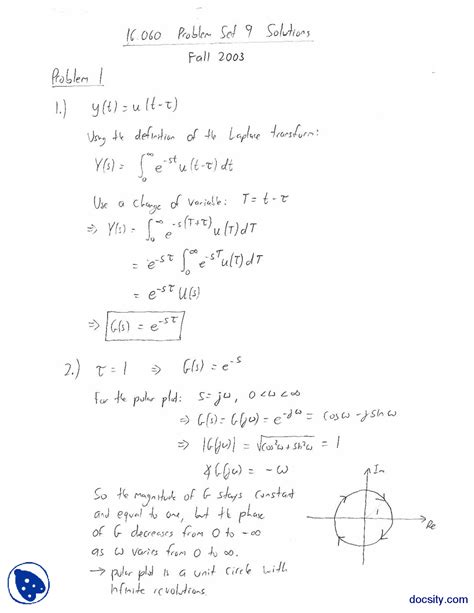 16.060 Problem Set 9 Solutions
Fall 2003
Problem 1
1.) y(t) = u(t-τ)
Using the definition of the Laplace transform:
Y(s) = ∫₀^∞ e^{-st} u(t-τ) dt
Use a change of variable: T = t - τ
⇒ Y(s) = ∫₀^∞ e^{-s(T+τ)} u(T) dT
= e^{-sτ} ∫₀^∞ e^{-sT} u(T) dT
= e^{-sτ} U(s)
⇒ G(s) = e^{-sτ}
2.) τ = 1 ⇒ G(s) = e^{-s}
For the polar plot: s = jω, 0 < ω < ∞
⇒ G(s) = G(jω) = e^{-jω} = cosω - j sinω
⇒ |G(jω)| = √(cos²ω + sin²ω) = 1
∡G(jω) = -ω
So the magnitude of G stays constant
and equal to one, but the phase
of G decreases from 0 to -∞
as ω varies from 0 to ∞.
→ polar plot is a unit circle with
infinite revolutions.
Im
1
Re
docsity.com